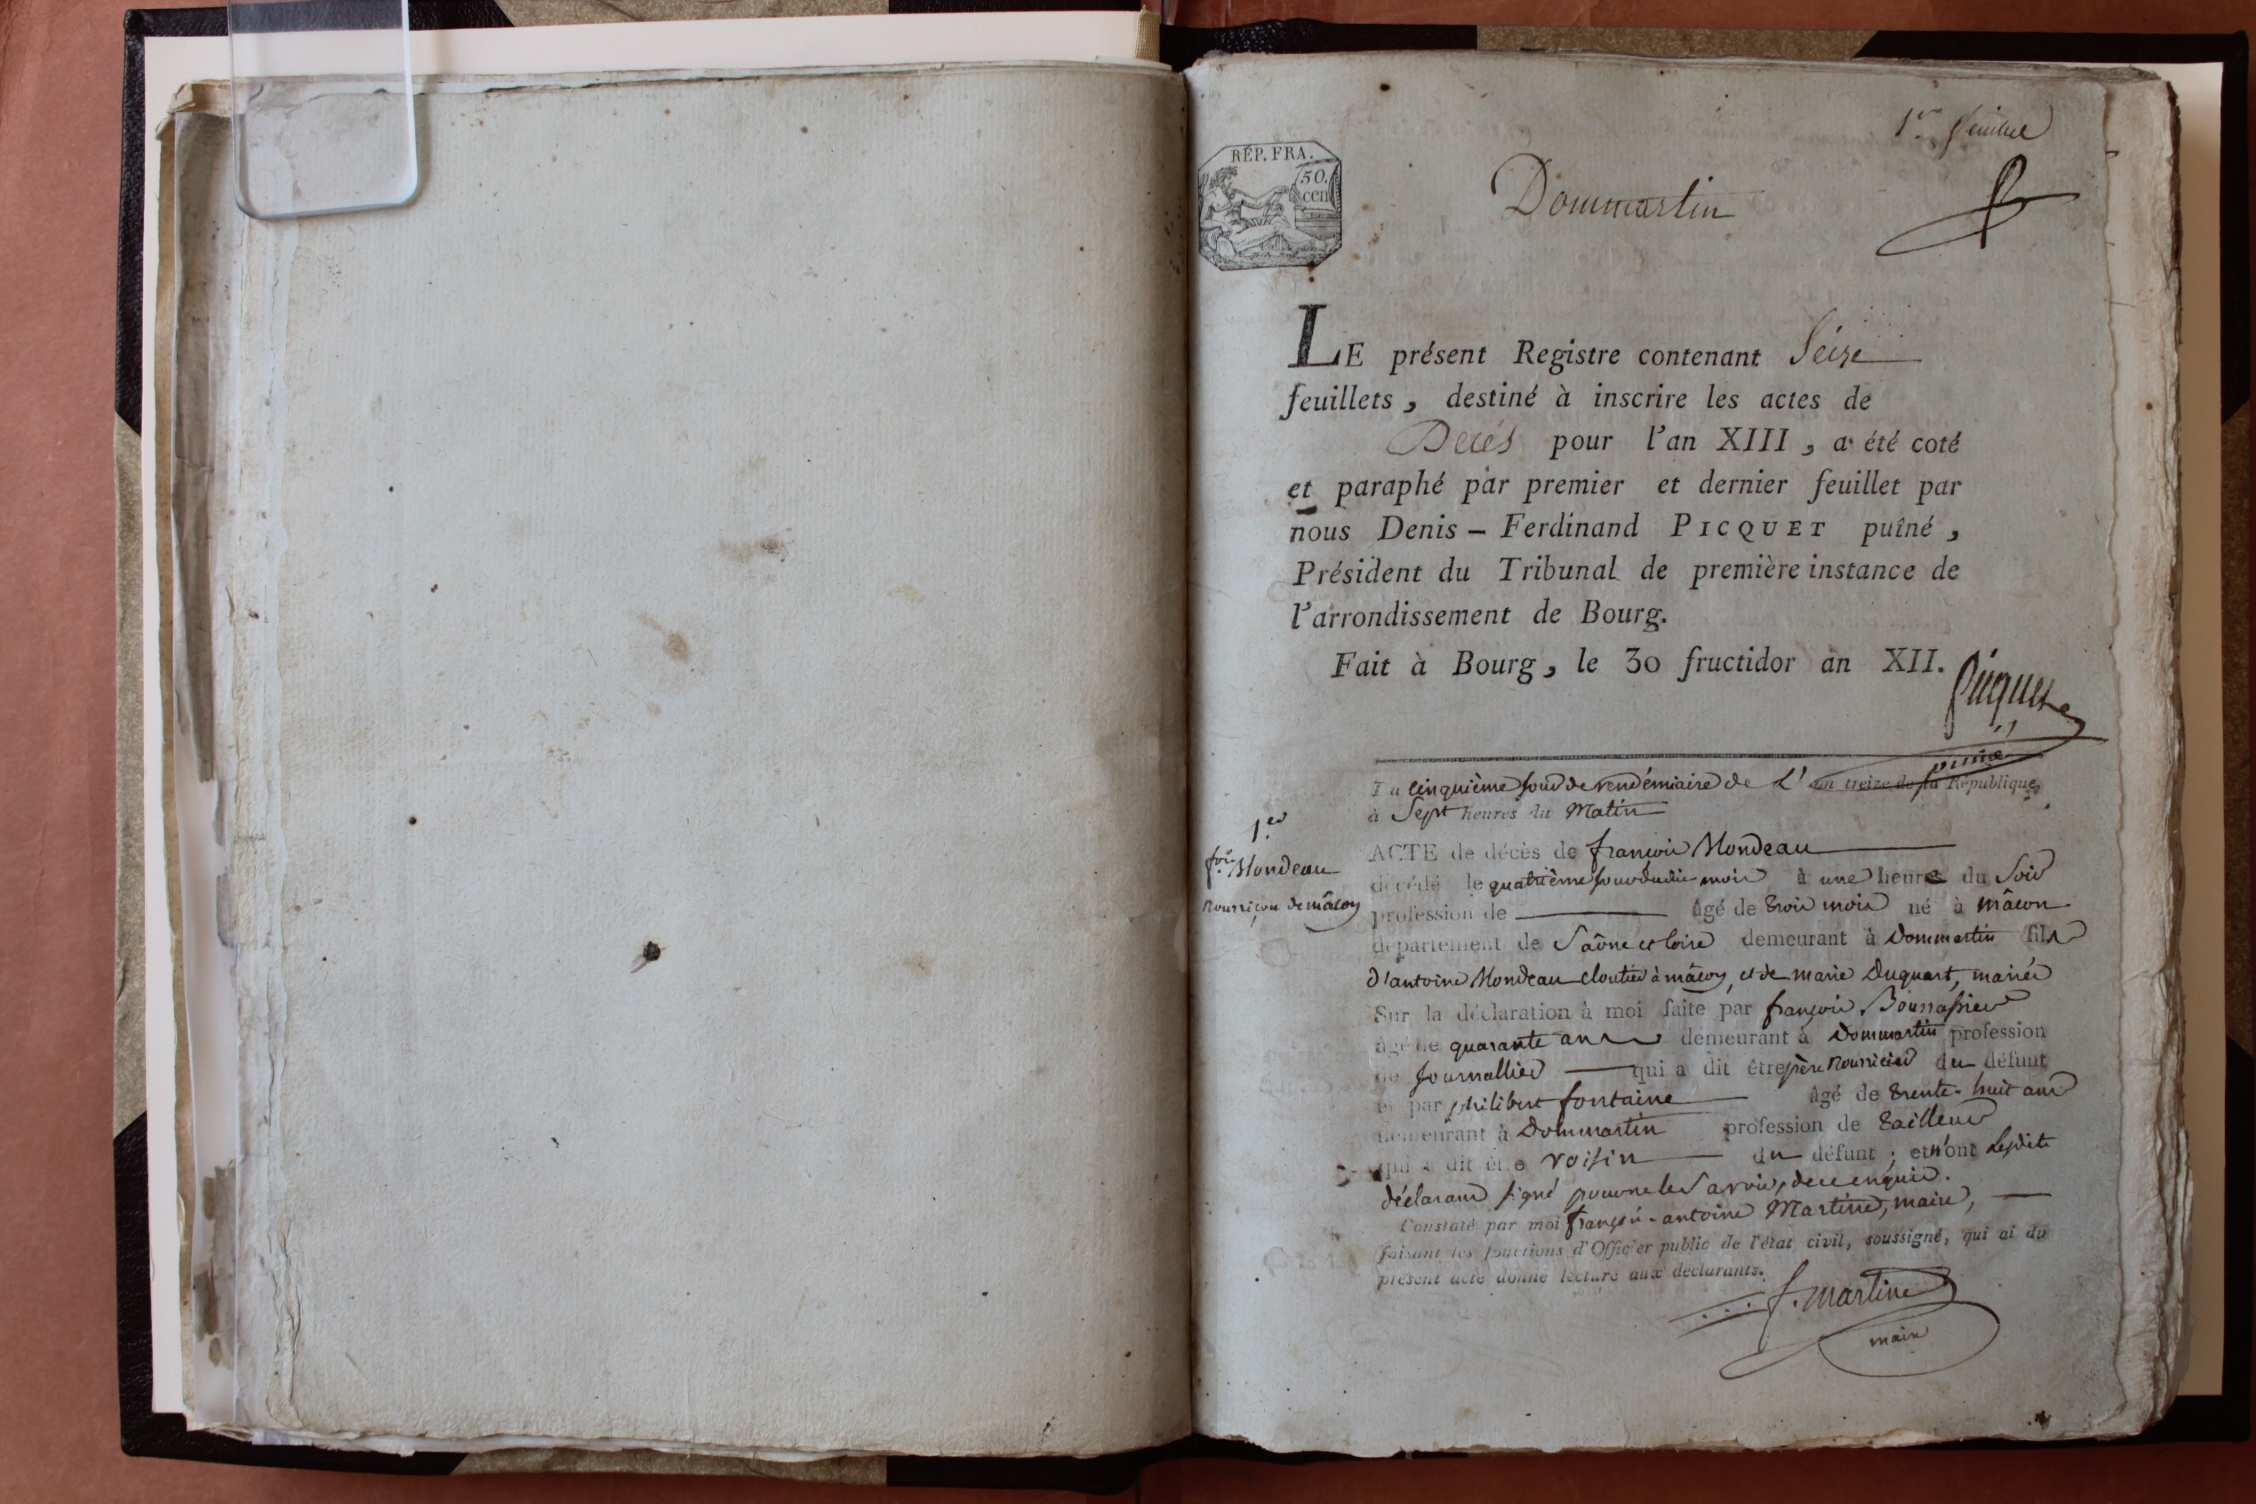 1er feuillet
RÉP. FRA.
50.
cen
Dommartin
LE présent Registre contenant Seize
feuillets, destiné à inscrire les actes de
Decés pour l'an XIII, a été coté
et paraphé par premier et dernier feuillet par
nous Denis-Ferdinand PICQUET puîné,
Président du Tribunal de première instance de
l'arrondissement de Bourg.
Fait à Bourg, le 30 fructidor an XII.
Picquet
puiné
Du cinquième jour de vendémiaire de L'an treize de la République
à Sept heures du Matin
1er
fois Mondeau
nourriçon de mâcon
ACTE de décès de françois Mondeau
décédé le quatrième jour dudit mois à une heure du Soir
profession de âgé de trois mois né à mâcon
departement de Saône et loire demeurant à Dommartin fils
d'antoine Mondeau cloutier à mâcon, et de marie Duquart, mariés
Sur la déclaration à moi faite par françois Bonnassieu
âgé de quarante ans demeurant à Dommartin profession
de journallier qui a dit être père nourricier du défunt
et par philibert fontaine âgé de trente-huit ans
demeurant à Dommartin profession de tailleur
qui a dit être voisin du défunt; et n'ont lesdits
déclarans signé pour ne le savoir, de ce enquis.
Constaté par moi françois-antoine Martine, maire,
faisant les fonctions d'Officier public de l'état civil, soussigné, qui ai du
présent acte donné lecture aux déclarants.
f. martine
maire